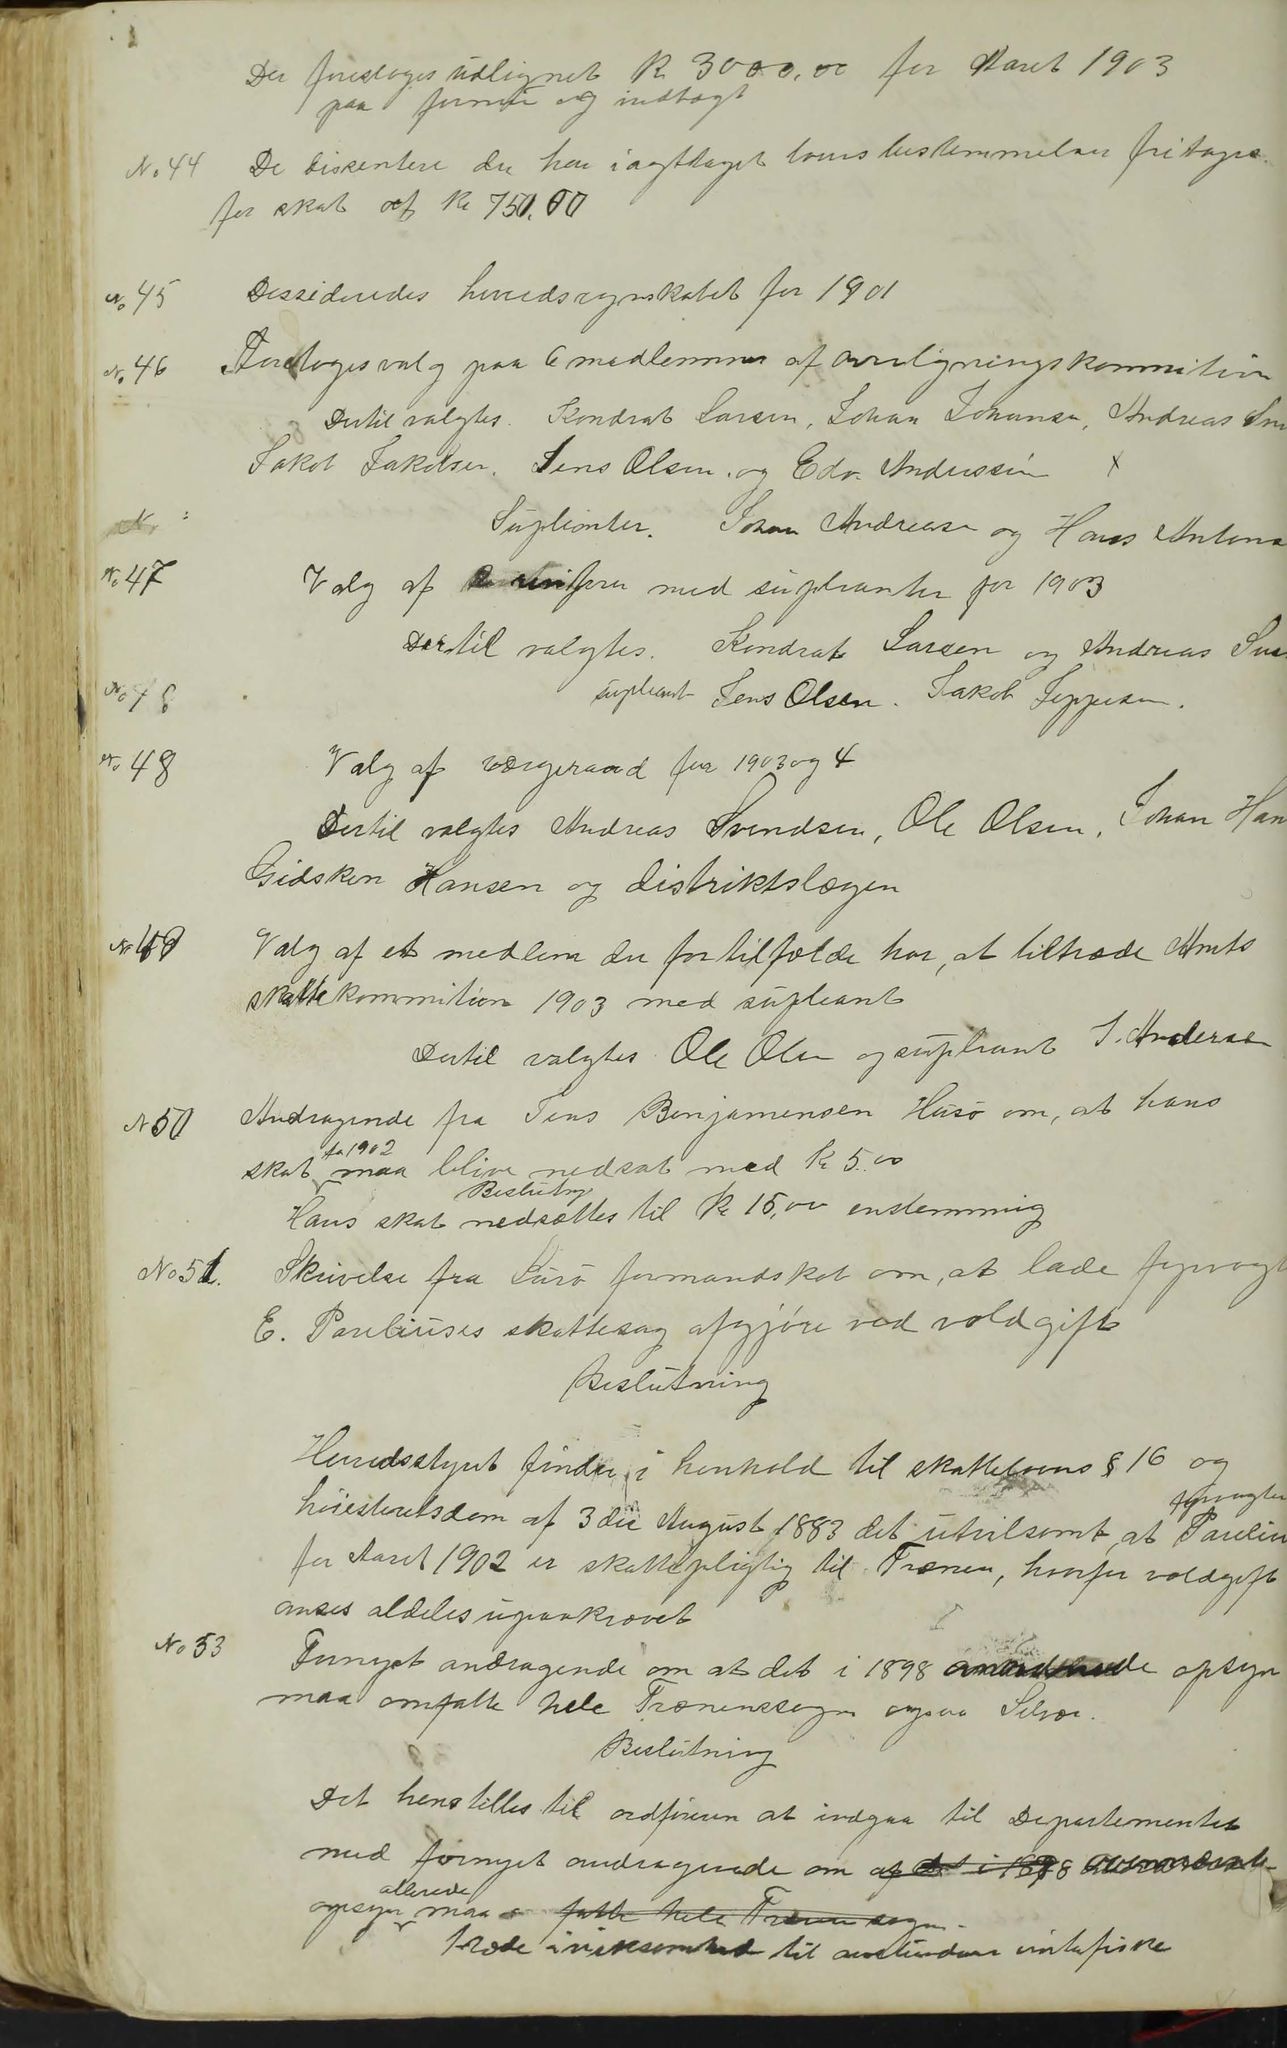 Der foretoges udlignet Kr 3000,00 for Aaret 1903
paa formue og indtægt
No 44 De disentere der har iagttaget lovens bestemmelser fritages
for skat af Kr 750,00
No 45 Dessideredes herredsregnskabet for 1901
No 46 Foretoges valg paa 6 medlemmer af overligningskommitien
Dertil valgtes. Kondrat Larsen, Johan Johansen, Andreas Sve
Jakob Jakobsen. Jens Olsen. og Edv. Andressen x
No
Suplianter. Johan Andreasen og Hans Antons
No 47 Valg af 2 revisorer med suplianter for 1903
Dertil valgtes. Kondrat Larsen og Andreas Sve
No 48 supleant Jens Olsen. Jakob Jeppesen.
No 48 Valg af værgeraad for 1903 og 4
Dertil valgtes Andreas Svendsen, Ole Olsen, Johan Han
Gidsken Hansen og distriktslægen
No 49 Valg af et medlem der for tilfælde har, at tiltræde Amts
skattekommitien 1903 med supleant
Dertil valgtes Ole Olsen og supleant J. Andersen
No 50 Andragende fra Jens Benjamensen Husø om, at hans
skat for 1902 maa blive nedsat med Kr 5.00
Beslutng
Hans skat nedsættes til Kr 15,00 enstemmig
No 51. Skrivelse fra Lurø formandskab om, at lade fyrvogt
E. Pauliuses skattesag afgjøre ved voldgift
Beslutning
Herredsstyret finder i henhold til skattelovens § 16 og
høiesteretsdom af 3die August 1883 det utvilsomt, at fyrvogter Pauliu
for Aaret 1902 er skattepligtig til Trænen, hvorfor voldgift
anses aldeles upaakrævet
No 53 Fornyet andragende om at det i 1898 opsyn
maa omfatte hele Trænenssogn ogsaa Selvær.
Beslutning
Det henstilles til ordføreren at indgaa til Departementet
med fornyet andragende om at det i 1898
opsyn allerede maa fatte hele Trænen sogn.
træde i virksomhed til anstundende vinterfiske